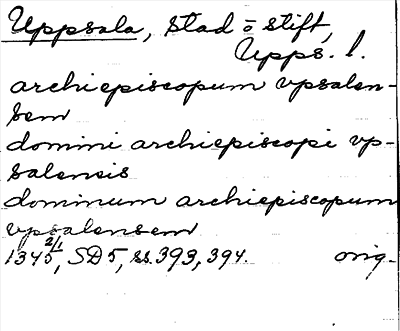 Uppsala, stad o stift,
Upps. l.
archiepiscopum vpsalen-
sem
domini archiepiscopi vp-
salensis
dominum archiepiscopum
vpsalensem
1345 2/1, SD5, ss. 393, 394. orig.